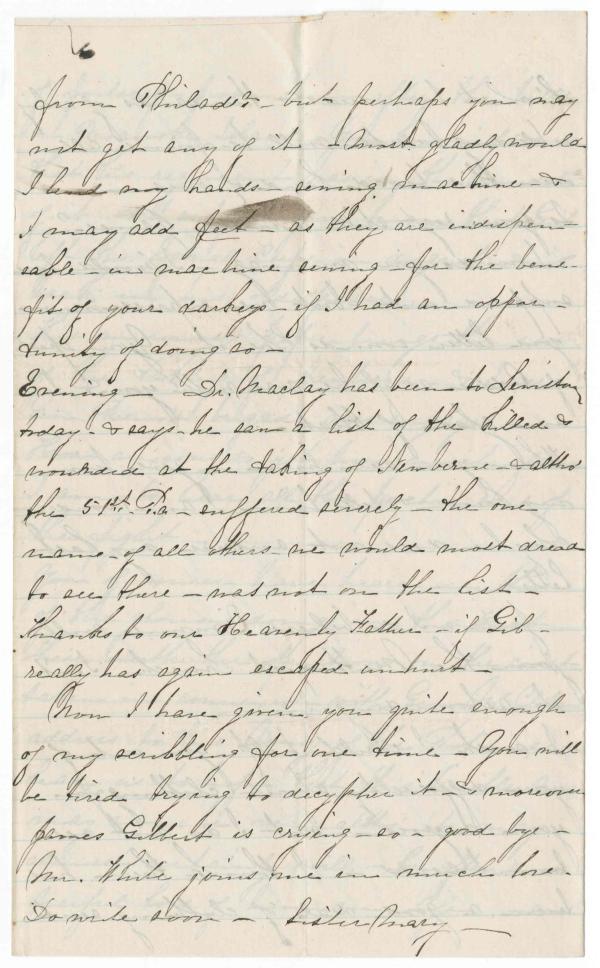 6
from Philada - but perhaps you may
not get any of it - most gladly would
I lend my hands - sewing machine - &
I may add feet - as they are indispen-
sable - in machine sewing - for the bene-
fit of your darkeys - if I had an oppor-
tunity of doing so -
Evening - Dr. Maclay has been to Lewistown
today - & says - he saw a list of the killed &
wounded at the taking of Newberne - & altho'
the 51st. Pa - suffered severely - the one
name - of all others we would most dread
to see there - was not on the list -
thanks to our Heavenly Father - if Gib -
really has again escaped unhurt -
Now I have given you quite enough
of my scribbling for one time - You will
be tired trying to decypher it - & moreover
James Gilbert is crying - so - good bye -
Mr. White joins me in much love.
Do write soon - Sister Mary -